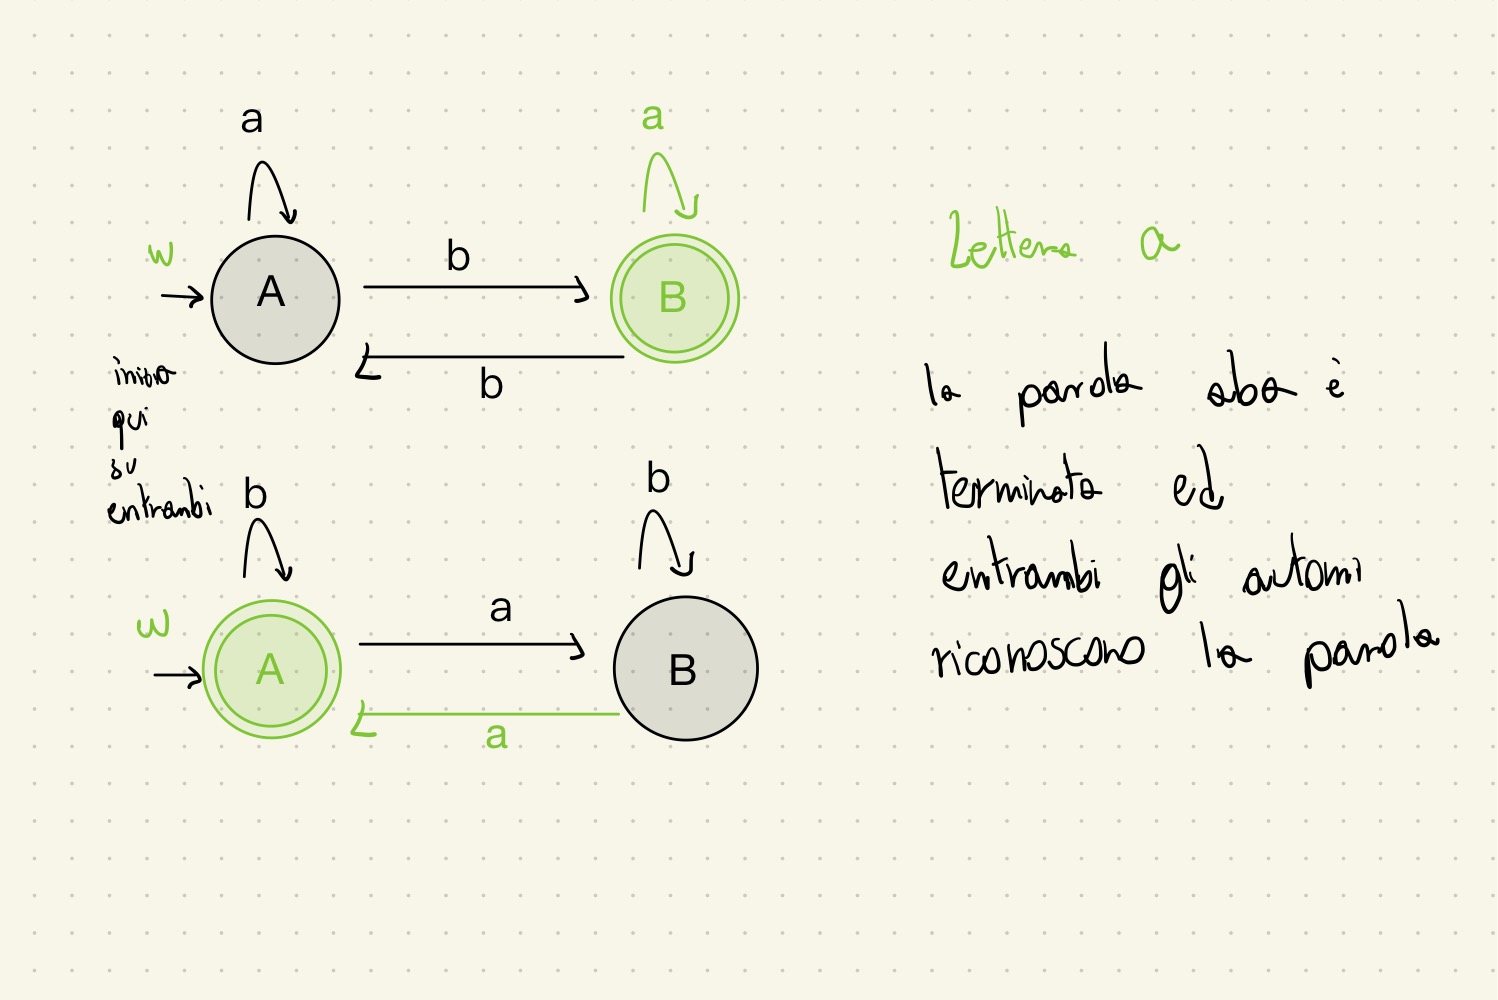 a
a
w
A
b
B
b
inizia
qui
su
entrambi
b
b
w
A
a
B
a
Lettera a
la parola aba è
terminata ed
entrambi gli automi
riconoscono la parola